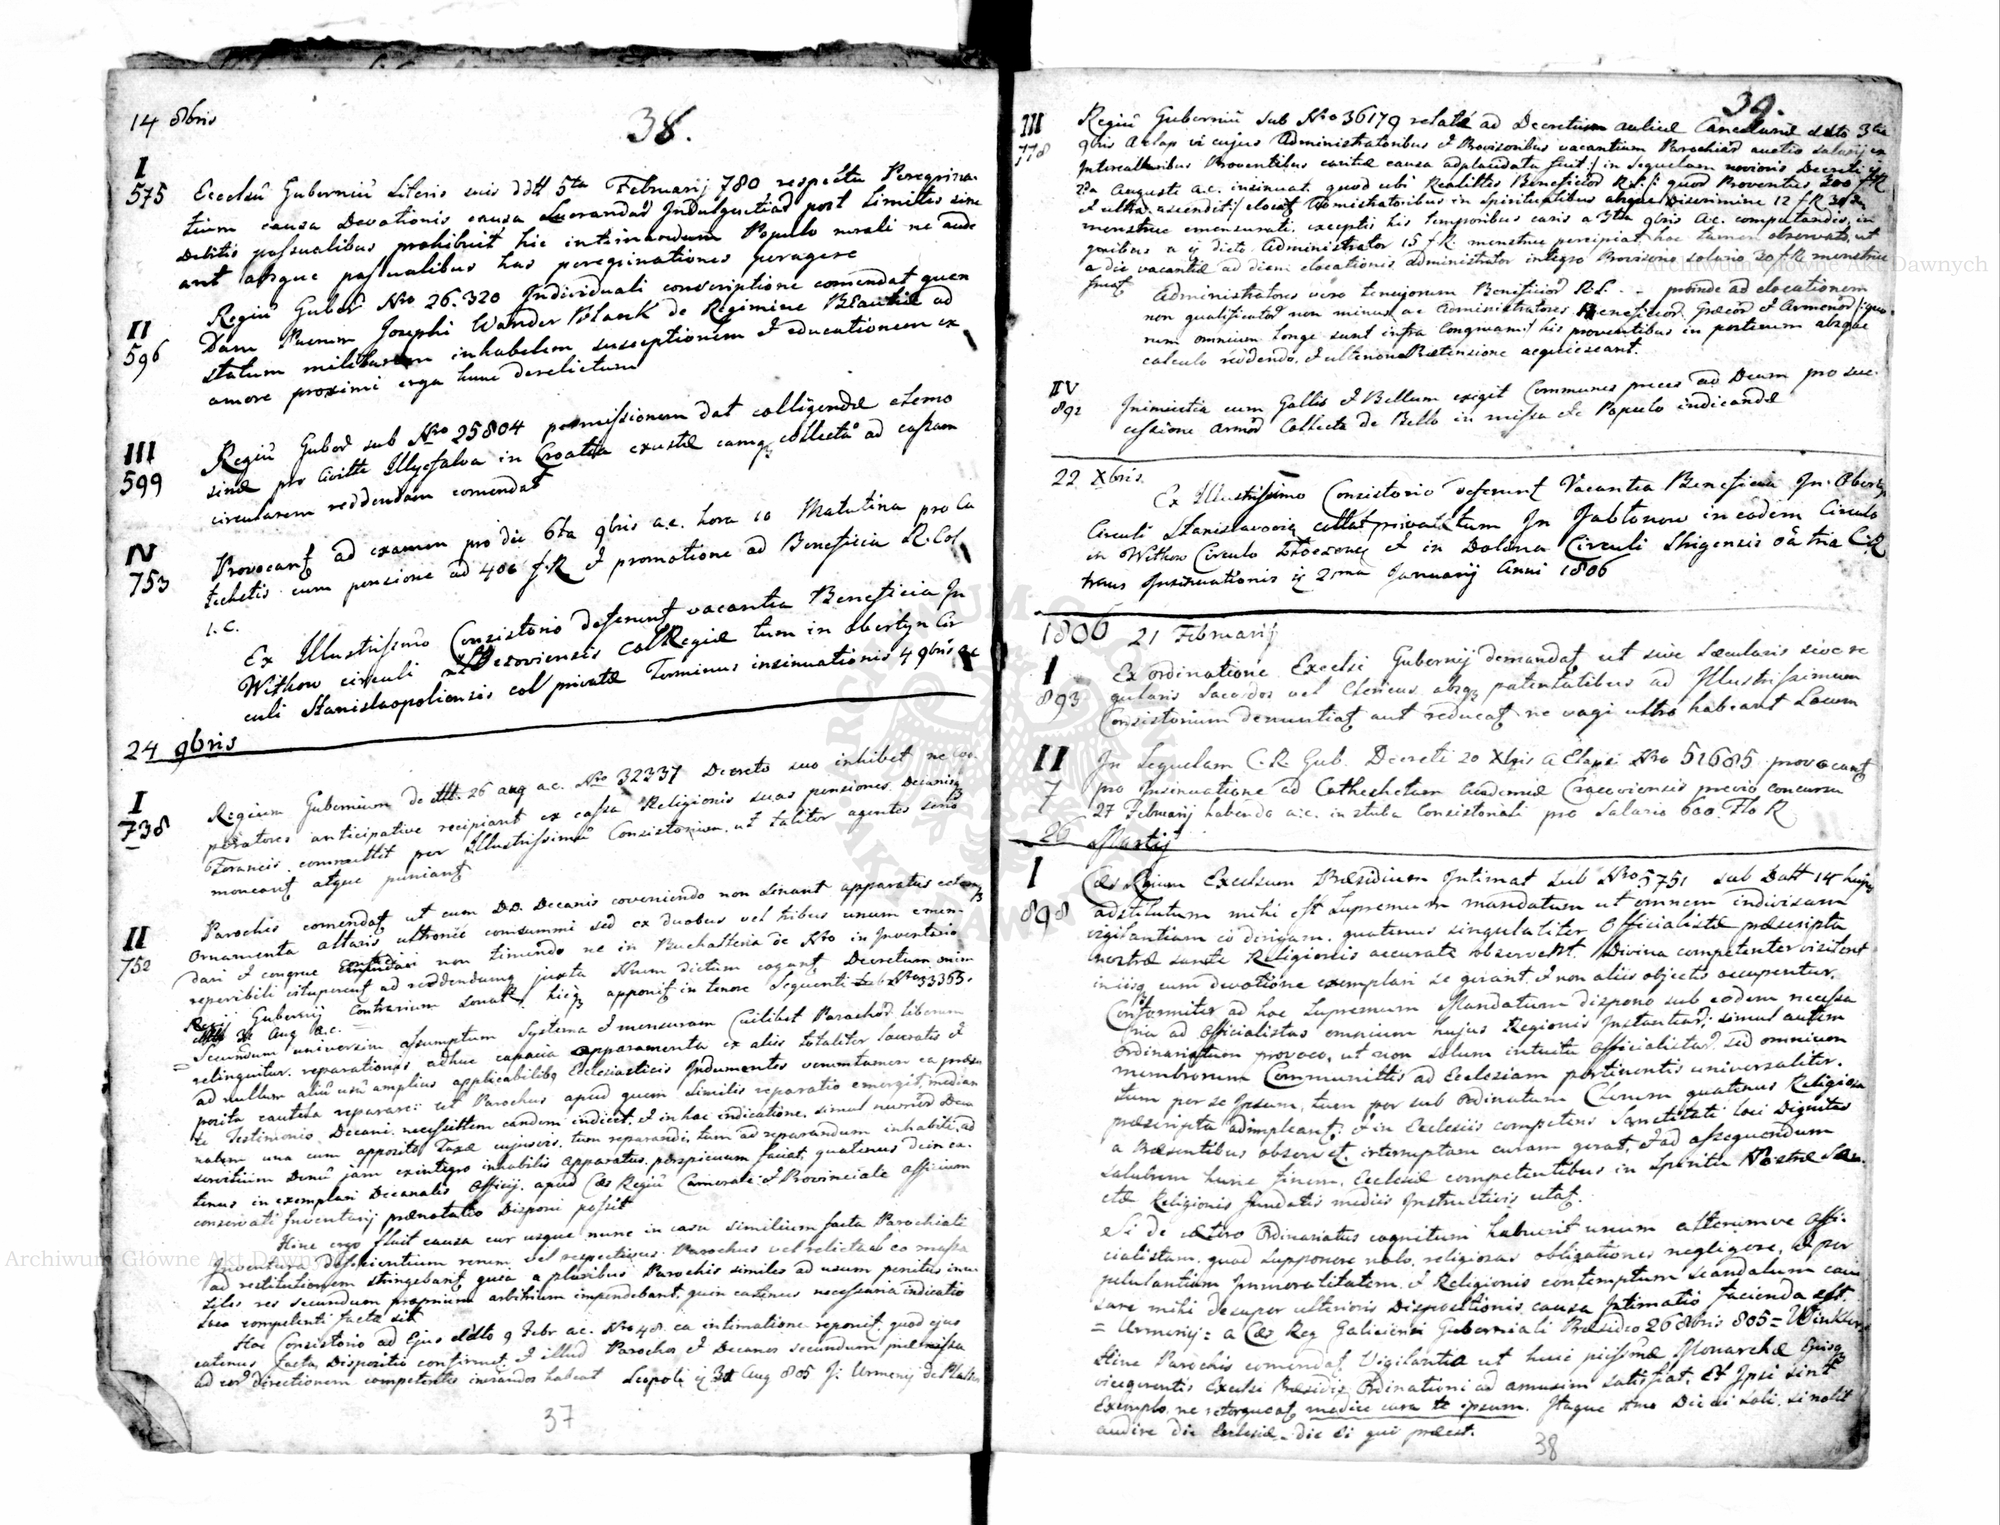 38.
14 8bris
I
575 Excelsū Guberniū Literis suis ddtt 5ta Februarij 780 respectu Peregrina-
tium causa Devotionis causa Lucrandar Indulgentiar post Limites sine
Debitis passualibus prohibuit hic intimandum Populo rurali ne aude
ant absque passualibus has peregrinationes peragere
II
596 Regiū Guber No 26.320 Individuali conscriptione comendat quen
Dam Puerum Josephi Wander Blank de Regimine ad
statum militarem inhabilem susceptionem et educationem ex
amore proximi erga hunc derelictum
III
599 Regiū Guber sub Nro 25804 permissionem dat colligendæ elemo
sinæ pro Civitte Illyefalva in Croatia exustæ eamq collectā ad cassam
circularem reddendam comendat
IV
753 Provocant ad examen pro die 6ta 9bris a.c. hora 10 Matutina pro Ca
techetis cum pensione ad 400 f.R et promotione ad Beneficia R. Col
l. c.
Ex Illustrissimo Consistorio deferunt vacantia Beneficia In
Withow circuli collRegiæ tum in Obertyn Cir
culi Stanislaopoliensis col privatæ Terminus insinuationis 4 9bris ac
24 9bris
I
738 Regium Gubernium de 26 aug a.c. Nro 32337 Decreto suo inhibet ne Coo-
peratores anticipative recipiant ex cassa Religionis suas pensiones, Decanisq
Foraneis committit per Illustrissimū Consistorium, ut taliter agentes serio
moneant atque puniant
II
752 Parochis comendat ut cum D.D. Decanis coveniendo non sinant apparatus
ornamenta altaris ultronee consummi sed ex duobus vel tribus unum emen-
dari et congrue non timendo ne in Buchalteria de Nro in Inventario
reperibili vituperent ad reddendumq juxta Num dictum cogant Decretum enim
Regij Gubernij contrarium sonat, hicq apponit in tenore Sequenti sub Nro 33363.
Aug a.c.
= Secundum universim assumptum Systema et mensuram Cuilibet Parochor liberum
relinquitur, reparationis adhuc capacia apparamenta ex aliis totaliter laceratis et
ad nullum aliū usū amplius applicabilibq Ecclesiasticis Indumentis verumtamen ea præsup
posita cautela reparare: ut Parochus apud quem similis reparatio emergit, median
te Testimonio Decani necessittem eandem indicet, et in hac indicatione simul numeros Deca
nalem una cum apposito Taxæ cujusvis, tum reparandi, tum ad reparandum inhabiti, ad
servitium Denū jam exintegro inhabilis apparatus perspicuum faciat, quatenus dein ea-
tenus in exemplari Decanalis Officij, apud Cæs Regiū Camerale et Provinciale officium
conservati Inventarij prænotatio Disponi possit
Hinc ergo fluit causa cur usque nunc in casu similium facta Parochiali
Inventura deficientium rerum, vel respectivus Parochus vel relicta ab eo massa
ad restitutionem stringebant, quia a pluribus Parochis similes ad usum penitus inu-
tiles res secundum proprium arbitrium impendebant, quin eatenus necessaria indicatio
loco competenti facta sit
Hoc Consistorio ad Ejus ddto 9 Febr ac. Nro 48. ea intimatione reponit, quod ejus
eatenus facta Dispositio confirmet, et illud Parochos et Decanos secundum præmissa
ad eor directionem competentes inviandos habeat Leopoli 31 Aug 805 J: Urmenij
37
39.
III
778 Regiū Guberniū sub Nro 36179 relatē ad Decretum aulicæ Cancellariæ ddto 3tia
9bris a elap vi cujus Administratoribus et Provisoribus vacantium Parochiar auctio salarij ex
Intercallaribus Proventibus caritæ causa adplacidata fuit/ in sequelam novioris Decreti
2da Augusti a.c. insinuat, quod ubi Realittes Beneficior R.L. /: quod Proventus 300 f.R
et ultra ascendit:/ elocat Administratoribus in spiritualibus absque Discrimine 12 f.R
menstrue emensurati, exceptis his temporibus caris a 3tia 9bris a.c. computandis, in
quibus a dicto Administrator 15 f.R: menstrue percipiat, hoc tamen observato, ut
a die vacantiæ ad diem elocationis administrator integro Provisorio solario 20 f.R menstrue
fruat
Administratores vero tenujorum Beneficior R.L. - proinde ad elocationem
non qualificator non minus ac Administratores Beneficior Græcor et Armenor /: quo
rum omnium longe sunt infra Congruam:/ his proventibus in partium absque
calculo reddendo, et ulteriore Prætensione acquiescant.
IV
892 Inimicitia cum Gallis et Bellum exigit Communes preces ad Deum pro suc-
cessione armor Collecta de Bello in missa etc Populo indicandæ
22 Xbris.
Ex Illustrissimo Consistorio deferunt Vacantia Beneficia In Obertyn
Circuli Stanislavovien collat privat, tum In Jabłonow in eodem Circulo
in Withow Circulo Złoczov et in Dolina Circuli Strijensis oā tria C.R
trans Insinuationis 2ma Januarij Anni 1806
1806 21 Februarij
I
893 Ex ordinatione Excelsi Gubernij demandat, ut sive sæcularis sive re
gularis Sacerdos vel Clericus absq patentalibus ad Illustrissimum
Consistorium denuntiat aut reducat, ne vagi ultro habeant Locum
II
7 In Sequelam C.R. Gub. Decreti 20 Xbris a Elapsi Nro 51685 provocant
pro Insinuatione ad Cathechetam Academiæ Cracoviensis previo concursu
27 Februarij habendo a.c. in stuba Consistoriali pro Salario 600 Flo R
26 Martij
I
898 Cæs Regium Excelsum Præsidium Intimat sub Nro 5751 sub Datt 14 hujus
adstitutum mihi est Supremum mandatum ut omnem indivisam
vigilantiam eo dirigam, quatenus singulaliter Officialistæ præscripta
nostræ sanctæ Religionis accurate observent. Divina competenter visitent
in iisq cum devotione exemplari se gerant, et non aliis objectis occupentur,
Conformiter ad hoc Supremum Mandatum dispono sub eodem necessa
ria ad Officialistas omnium hujus Regionis Instantiar, simul autem
Ordinariatum provoco, ut non solum intuitu Officialistar, sed omnium
membrorum Communittis ad Ecclesiam pertinentis universaliter,
tum per se Ipsum, tum per sub Ordinatum Clerum quatenus Religiosa
præscripta adimpleant, et in Ecclesiis competens Sanctitati loci Dignitas
a Præsentibus observet, interruptam curam gerat, et ad assequendum
salubrem hunc finem, Ecclesiæ competentibus in Spiritu Nostræ San-
ctæ Religionis fundatis mediis Instructivis utat.
Si de cætero Ordinariatus cognitum habuerit unum alterumve Offi-
cialistam, quod supponere nolo, religiosas obligationes negligere, et per
petulantiam Immoralitatem, et Religionis contemptum scandalum cau
sare mihi desuper ulterioris Dispositionis causa Intimatio facienda est.
= Urmenij = a Cæs Reg Galiciensi Guberniali Præsidio 26 8bris 805 = Winkler
Hinc Parochis comendat Vigilantia ut huic piissimæ Monarchæ Ejusq
vicegerentis Excelsi Præsidis Ordinationi ad amusim satisfiat, Et Ipsi sint
Exemplo, ne retorqueat medice cura te ipsum. Itaque Imo Dic ei soli, si nolit
audire dic Ecclesiæ, dic ei qui præest.
38
Archiwum Główne Akt Dawnych
Archiwum Główne Akt Dawnych
ARCHIWUM GŁÓWNE AKT DAWNYCH